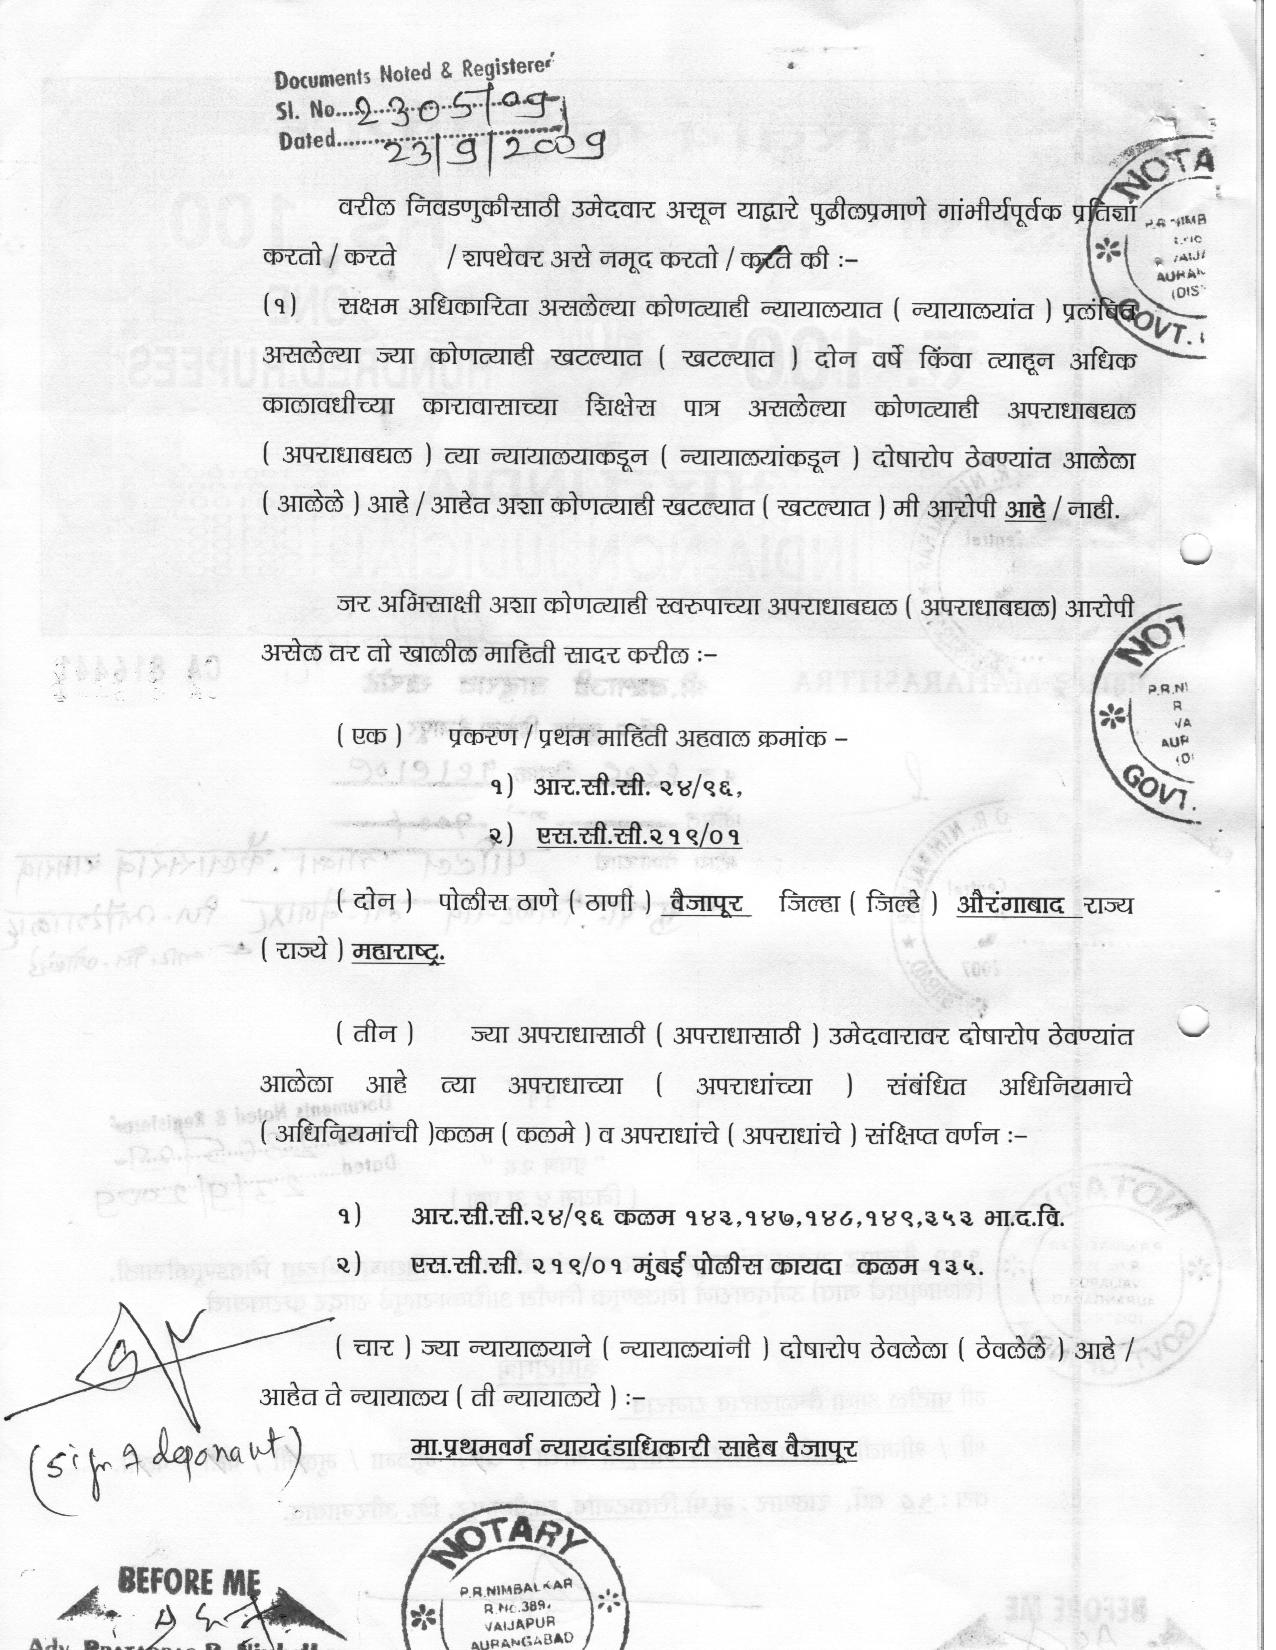 Documents Noted & Registered
Sl. No....2305/09
Dated......23/9/2009
वरील निवडणुकीसाठी उमेदवार असून याद्वारे पुढीलप्रमाणे गांभीर्यपूर्वक प्रतिज्ञा
करतो / करते / शपथेवर असे नमूद करतो / करते की :–
(१) सक्षम अधिकारिता असलेल्या कोणत्याही न्यायालयात ( न्यायालयांत ) प्रलंबित
असलेल्या ज्या कोणत्याही खटल्यात ( खटल्यात ) दोन वर्षे किंवा त्याहून अधिक
कालावधीच्या कारावासाच्या शिक्षेस पात्र असलेल्या कोणत्याही अपराधाबद्यल
( अपराधाबद्यल ) त्या न्यायालयाकडून ( न्यायालयांकडून ) दोषारोप ठेवण्यांत आलेला
( आलेले ) आहे / आहेत अशा कोणत्याही खटल्यात ( खटल्यात ) मी आरोपी आहे / नाही.
जर अभिसाक्षी अशा कोणत्याही स्वरुपाच्या अपराधाबद्यल ( अपराधाबद्यल) आरोपी
असेल तर तो खालील माहिती सादर करील :–
( एक ) प्रकरण / प्रथम माहिती अहवाल क्रमांक –
१) आर.सी.सी. २४/९६,
२) एस.सी.सी.२१९/०१
( दोन ) पोलीस ठाणे ( ठाणी ) वैजापूर जिल्हा ( जिल्हे ) औरंगाबाद राज्य
( राज्ये ) महाराष्ट्र.
( तीन ) ज्या अपराधासाठी ( अपराधासाठी ) उमेदवारावर दोषारोप ठेवण्यांत
आळेला आहे त्या अपराधाच्या ( अपराधांच्या ) संबंधित अधिनियमाचे
( अधिनियमांची )कळम ( कळमे ) व अपराधांचे ( अपराधांचे ) संक्षिप्त वर्णन :–
१) आर.सी.सी.२४/९६ कळम १४३,१४७,१४८,१४९,३५३ भा.द.वि.
२) एस.सी.सी. २१९/०१ मुंबई पोलीस कायदा कळम १३५.
( चार ) ज्या न्यायालयाने ( न्यायालयांनी ) दोषारोप ठेवलेला ( ठेवलेले ) आहे /
आहेत ते न्यायालय ( ती न्यायालये ) :–
मा.प्रथमवर्ग न्यायदंडाधिकारी साहेब वैजापूर
(Sign of deponaut)
BEFORE ME
NOTARY
P.R.NIMBALKAR
R.No.389
VAIJAPUR
AURANGABAD